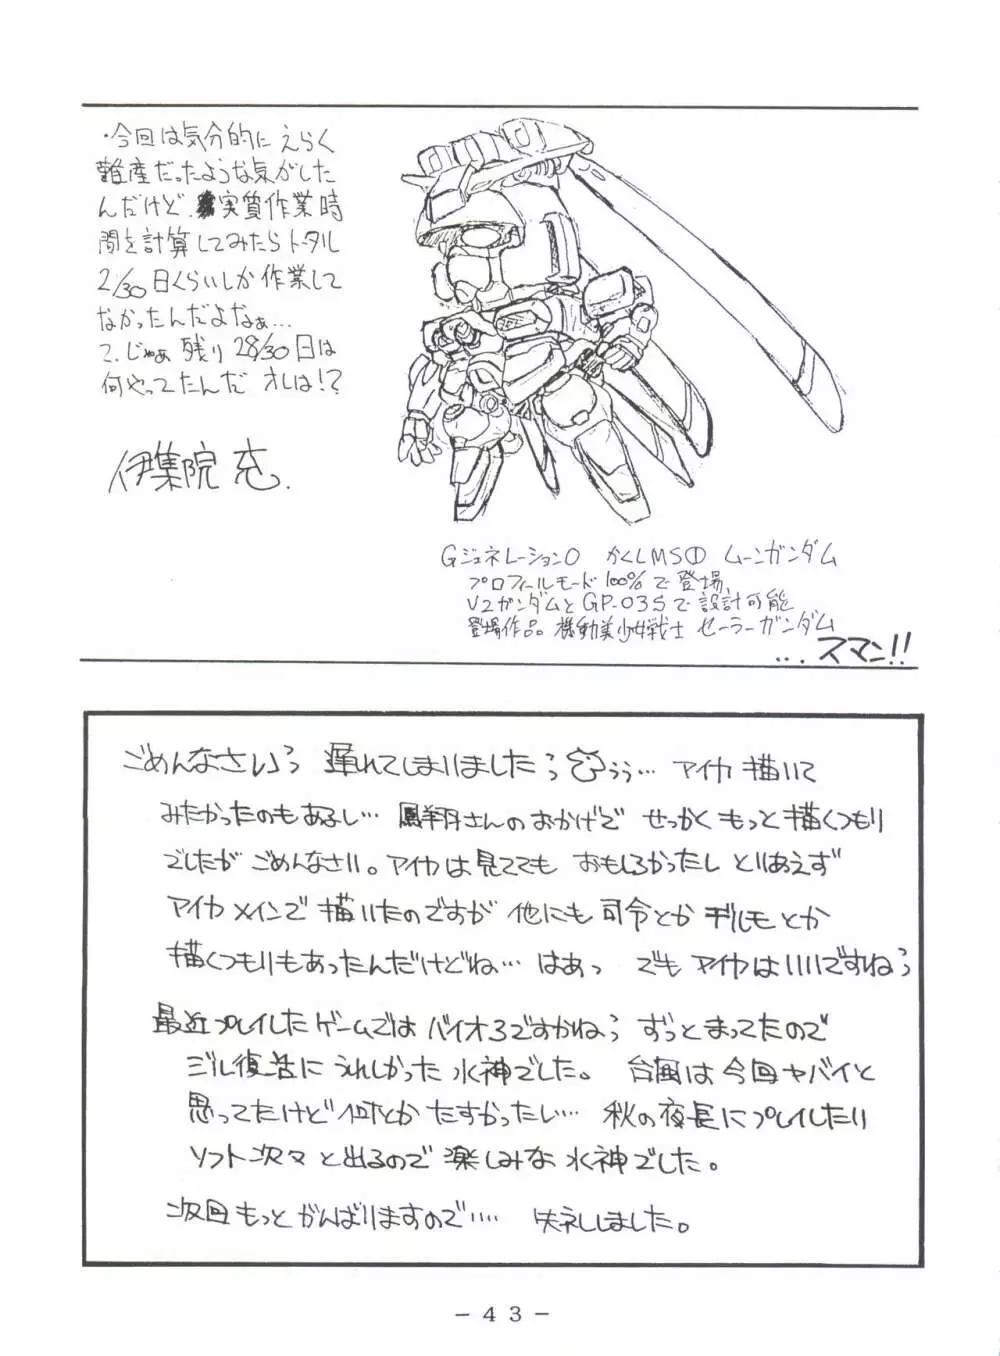 ・今回は気分的にえらく
難産だったような気がした
んだけど、実質作業時
間を計算してみたらトータル
2/30日くらいしか作業して
なかったんだよなぁ…
で、じゃあ残り28/30日は
何やってたんだオレは!?
伊集院 充.
Gジェネレーション0 かくしMS① ムーンガンダム
プロフィールモード100%で登場、
V2ガンダムとGP-03Sで設計可能
登場作品。機動美少女戦士 セーラーガンダム
...スマン!!
ごめんなさいっ 遅れてしまいましたっ うぅ… アイカ描いて
みたかったのもあるし… 鳳翔さんのおかげで せっかくもっと描くつもり
でしたが ごめんなさい。アイカは見ててもおもしろかったし とりあえず
アイカメインで描いたのですが 他にも司令とか デルモとか
描くつもりもあったんだけどね… はあっ でもアイカはいいですねっ
最近プレイしたゲームではバイオ3ですかねっ ずっとまってたので
ジル復活にうれしかった水神でした。 台風は今回ヤバイと
思ってたけど何とかたすかったい… 秋の夜長にプレイしたい
ソフト次々と出るので楽しみな水神でした。
次回もっとがんばりますので…. 失ネししました。
－43－